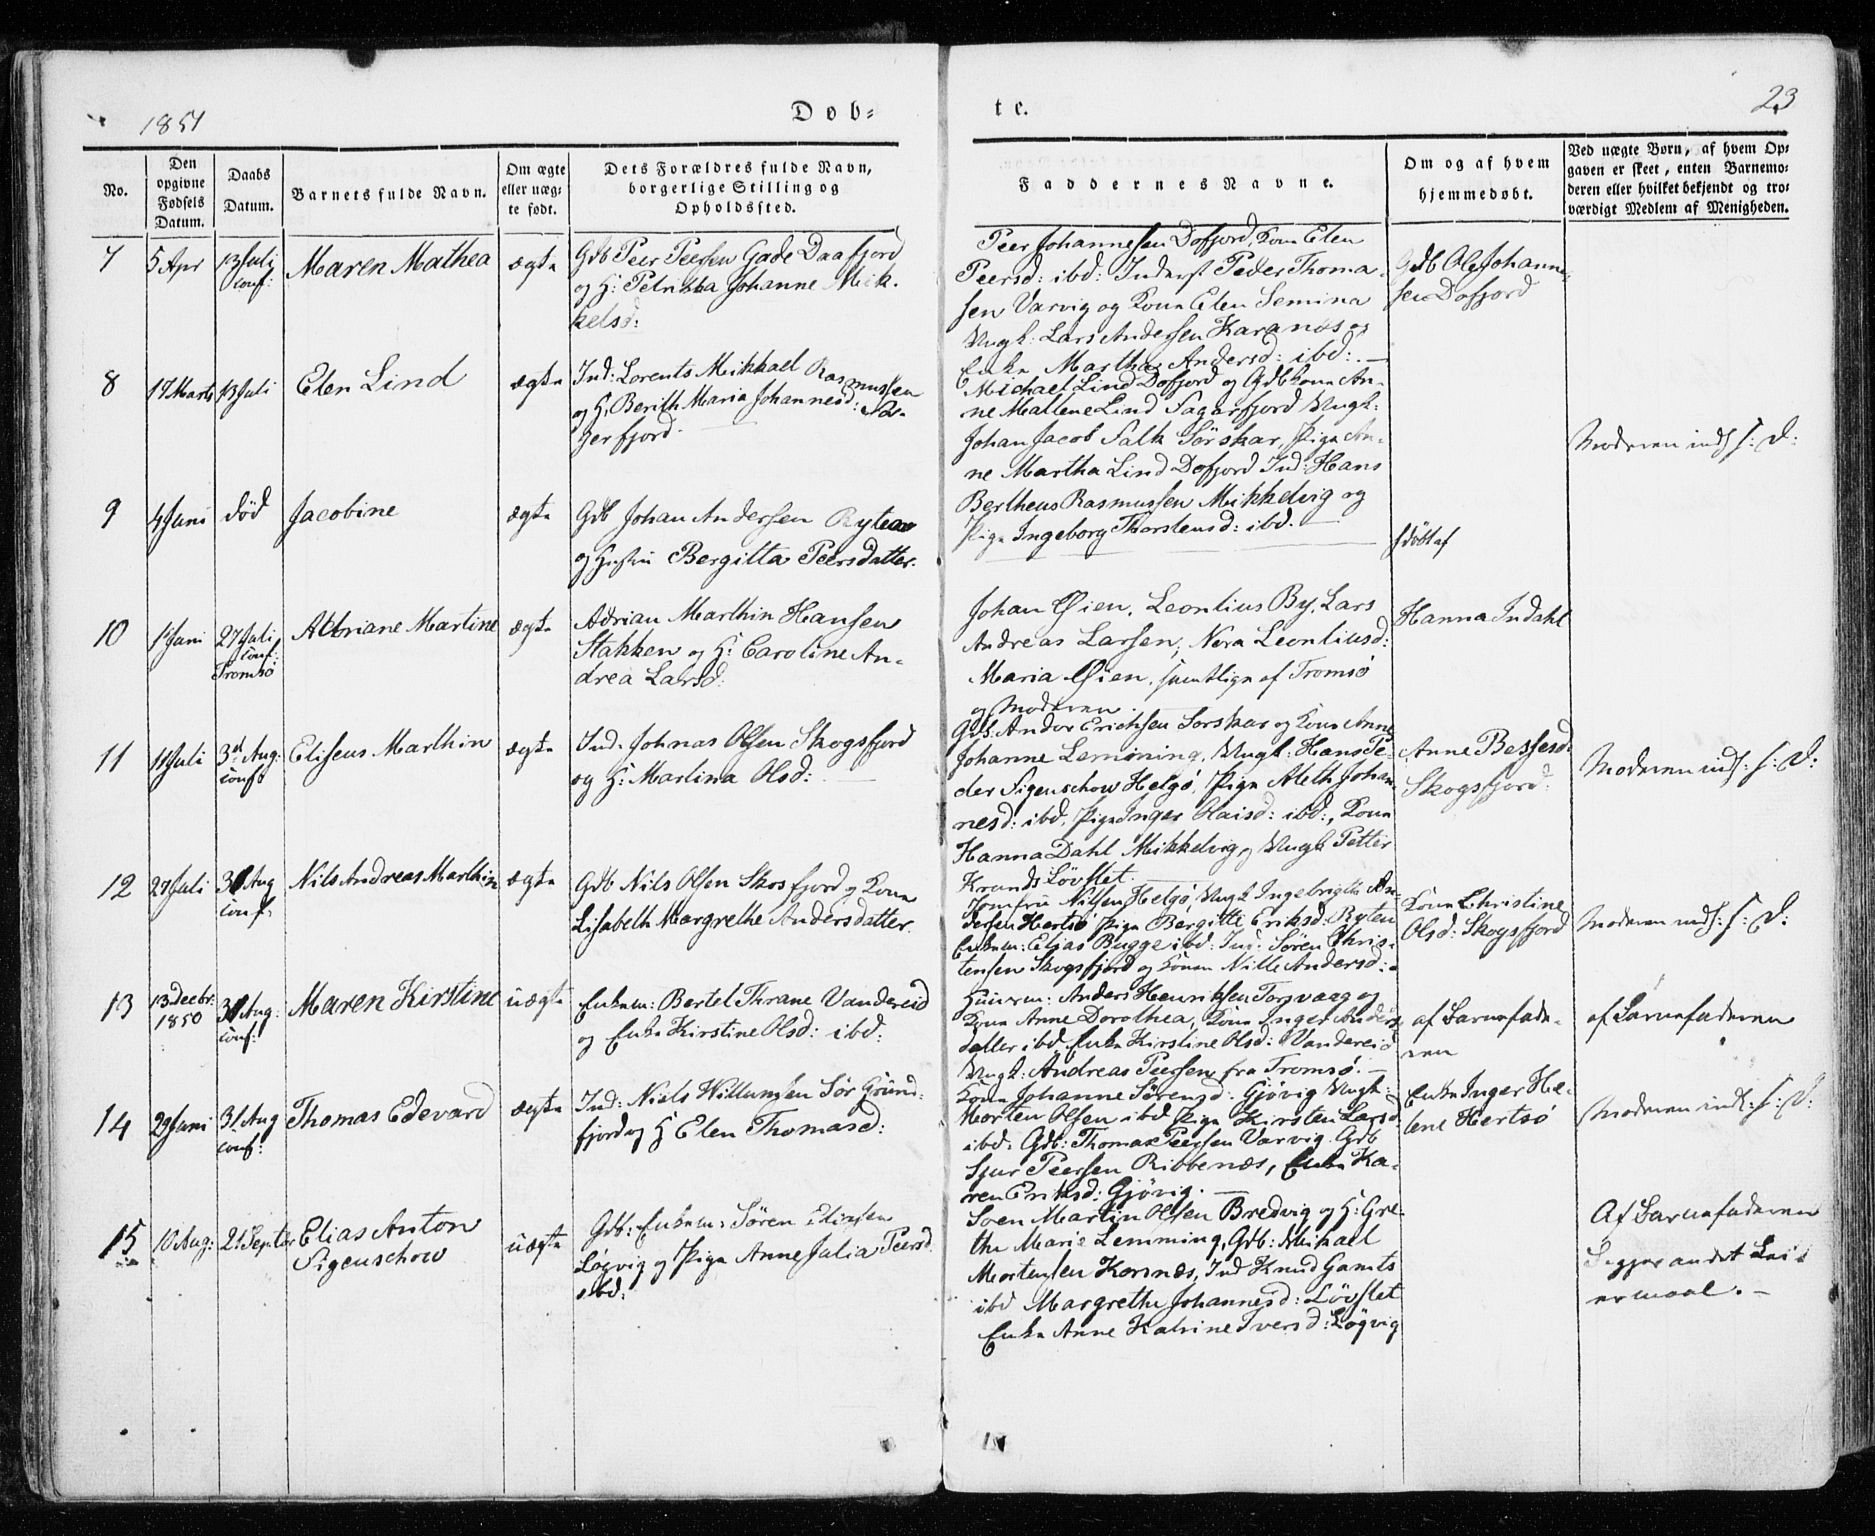 1851
Døb-
te.
23
No.
Den opgivne Fødsels Datum.
Daabs Datum.
Barnets fulde Navn.
Om ægte eller uægte født.
Dets Forældres fulde Navn, borgerlige Stilling og Opholdssted.
Faddernes Navne.
Om og af hvem hjemmedøbt.
Ved uægte Børn, af hvem Opgaven er skeet, enten Barnemoderen eller hvilket bekjendt og troværdigt Medlem af Menigheden.
7
5 Apr
13 Juli
conf:
Maren Mathea
ægte
Gdb Peer Peersen Gade Daafjord
og H: Petrikka Johanne Mik-
kelsd:
Peer Johannesen Dofjord, Kone Elen
Peersd: ibd: Inderst Peder Thoma-
sen Varvig og Kone Elen Semina
Ungk: Lars Andersen Karanes og
Enke Martha Andersd: ibd: —
Gdb Ole Johanne-
sen Dofjord
8
17 Marts
13 Juli
Elen Lind
ægte
Ind: Lorents Mikkael Rasmussen
og H: Berith Maria Johannesd: Sa-
gerfjord.
Michael Lind Dofjord og Gdbkone An-
ne Mallene Lind Sagarfjord Ungk:
Johan Jacob Falk Sørskar, Pige An-
ne Martha Lind Dofjord Ind: Hans
Bertheus Rasmussen Mikkelvig og
Pige Ingeborg Thorstensd: ibd. —
Moderen inds: s: D:
9
4 Juni
død
Jacobine
ægte
Gdb Johan Andersen Ryten
og Hustru Bergitta Peersdatter.
hdøbt af
10
1 Juni
27 Juli
conf:
Tromsø
Adriane Martine
ægte
Adrian Marthin Hansen
Stakken og H: Caroline An-
drea Larsd:
Johan Øien, Leontius By, Lars
Andreas Larsen, Nora Leontiusd:
Maria Øien, samtlige af Tromsø
og Moderen.
Hanna Indahl
11
11 Juli
3d Aug:
conf:
Eliseus Marthin
ægte
Ind. Johnas Olsen Skogsfjord
og H: Martina Olsd: —
Gdb. Andor Erichsen Sorskar og Kone Anne
Johanne Lemming, Ungk: Hans Pe-
der Sigenschow Helgø, Pige Aleth Johan-
nesd: ibd, Pige Inger Olaisd: ibd:, Kone
Hanna Dahl Mikkelvig, Ungk Petter
Krands Løvslet. —
Anne Bessesd:
Skogsfjord
Moderen inds: s: D:
12
27 Juli
31 Aug
conf.
Nils Andreas Marthin
ægte
Gdb Nils Olsen Skosfjord og Kone
Lisabeth Margrethe Andersdatter.
Jomfru Nilsen Helgø, Ungk Ingebrigth An-
dersen Hertsø Pige Bergitte Eriksd: Ryten
Enkem: Elias Bugge ibd: Ind: Søren Chris-
tensen Skogsfjord og Konen Nille Andersd:
Kone Christine
Olsd: Skogsfjord
Moderen inds: s: D:
13
13 Decbr.
1850
31 Aug:
conf:
Maren Kirstine
uægte
Enkem: Bertel Thrane Vandereid
og Enke Kirstine Olsd: ibd:
Huusm: Anders Henriksen Torsvaag og
Kone Anne Dorothea, Kone Inger Anders-
datter ibd, Enke Kirstine Olsd: Vandereid
Ungk: Andreas Peersen fra Tromsø. —
af Barnefade-
ren
af Barnefaderen
14
29 Juni
31 Aug
conf:
Thomas Edevard
ægte
Ind: Niels Willumsen Sør Grund-
fjord og H Elen Thomasd:
Kone Johanne Sørensd: Gjøvig Ungk:
Morten Olsen ibd Pige Kirsten Larsd
ibd. Gdb: Thomas Peersen Varvig. Gdb
Sjur Peersen Ribbenæs, Enke Ka-
ren Eriksd: Gjøvig. —
Enke Inger He-
lene Hertsø
Moderen inds: s: D:
15
10 Aug:
21 Septbr
Elias Anton
Sigenschow
uægte
Gdb: Enkem: Søren Eliasen
Løgvig og Pige Anne Julia Peersd:
ibd:
Soen Martin Olsen Bredvig og H: Gre-
the Marie Lemming, Gdb: Mikael
Mortensen Kornæs, Ind Knud Gamts
ibd Margrethe Johannesd: Løvslet
Enke Anne Katrine Iversd: Løgvig
Af Barnefaderen
Begges andet Lei-
ermaal. —